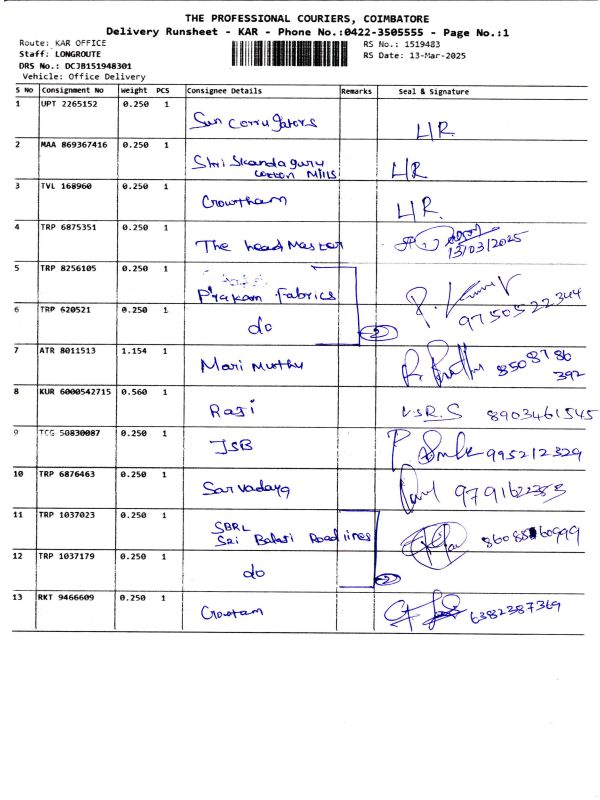 THE PROFESSIONAL COURIERS, COIMBATORE
Delivery Runsheet - KAR - Phone No.:0422-3505555 - Page No.:1
Route: KAR OFFICE
RS No.: 1519483
Staff: LONGROUTE
RS Date: 13-Mar-2025
DRS No.: DCJB151948301
Vehicle: Office Delivery
S No Consignment No Weight PCS Consignee Details Remarks Seal & Signature
1 UPT 2265152 0.250 1
Sun Corrugators L/R
2 MAA 869367416 0.250 1
Shri Skandaguru
Cotton Mills L/R
3 TVL 168960 0.250 1
Crowtham L/R.
4 TRP 6875351 0.250 1
The head Master 13/03/2025
5 TRP 8256105 0.250 1
Prakam Fabrics
6 TRP 620521 0.250 1
do 2 9750522344
7 ATR 8011513 1.154 1
Mari Muthy 8508786
392
8 KUR 6000542715 0.560 1
Raji V.S.R.S 8903461545
9 TCG 50830087 0.250 1
JSB 995212329
10 TRP 6876463 0.250 1
Sarvadaya
11 TRP 1037023 0.250 1
SBRL
Sri Balaji Roadlines
12 TRP 1037179 0.250 1
do 2
13 RKT 9466609 0.250 1
Crowtam 6382387369